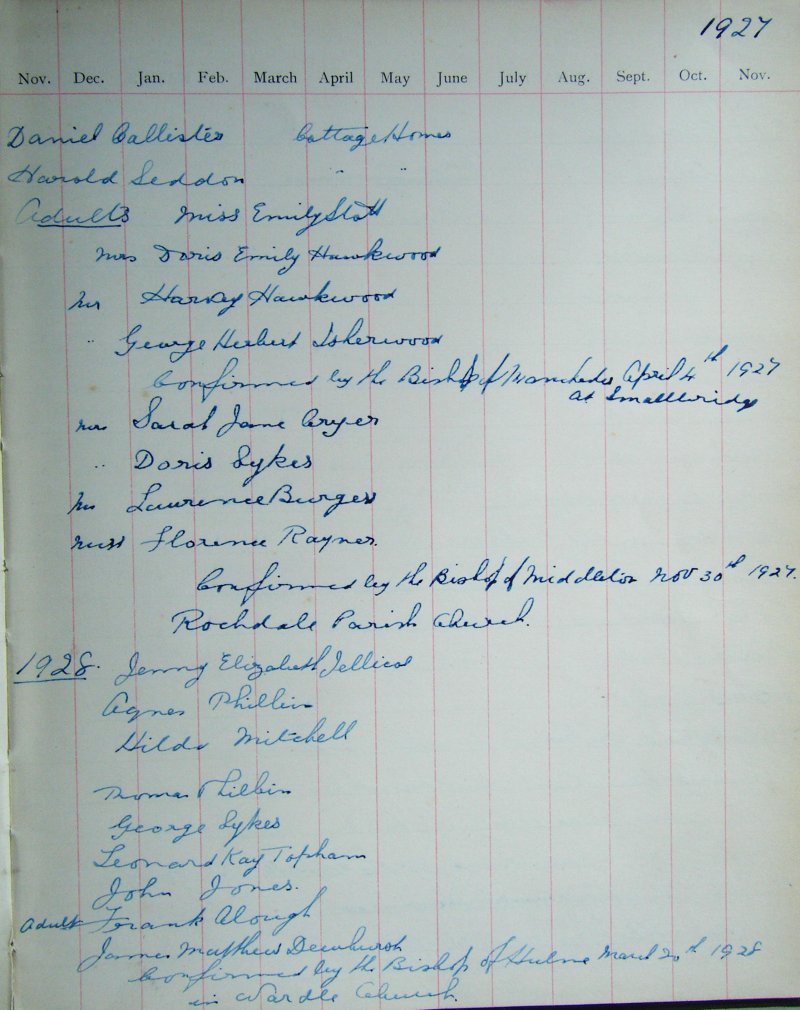 1927
Nov. Dec. Jan. Feb. March April May June July Aug. Sept. Oct. Nov.
Daniel Callister Cottage Homes
Harold Seddon " "
Adults Miss Emily Stott
Mrs Doris Emily Hawkwood
Mr Harvey Hawkwood
" George Herbert Isherwood
Confirmed by the Bishop of Manchester April 4th 1927
at Smallbridge
Mrs Sarah Jane Cryer
" Doris Sykes
Mr Laurence Burgess
Miss Florence Rayner.
Confirmed by the Bishop of Middleton Nov 30th 1927.
Rochdale Parish Church.
1928. Jenny Elizabeth Jellicoe
Agnes Philbin
Hilda Mitchell
Thomas Philbin
George Sykes
Leonard Kay Topham
John Jones.
Adult Frank Clough
James Matthew Dewhurst
Confirmed by the Bishop of Hulme March 20th 1928
in Wardle Church.